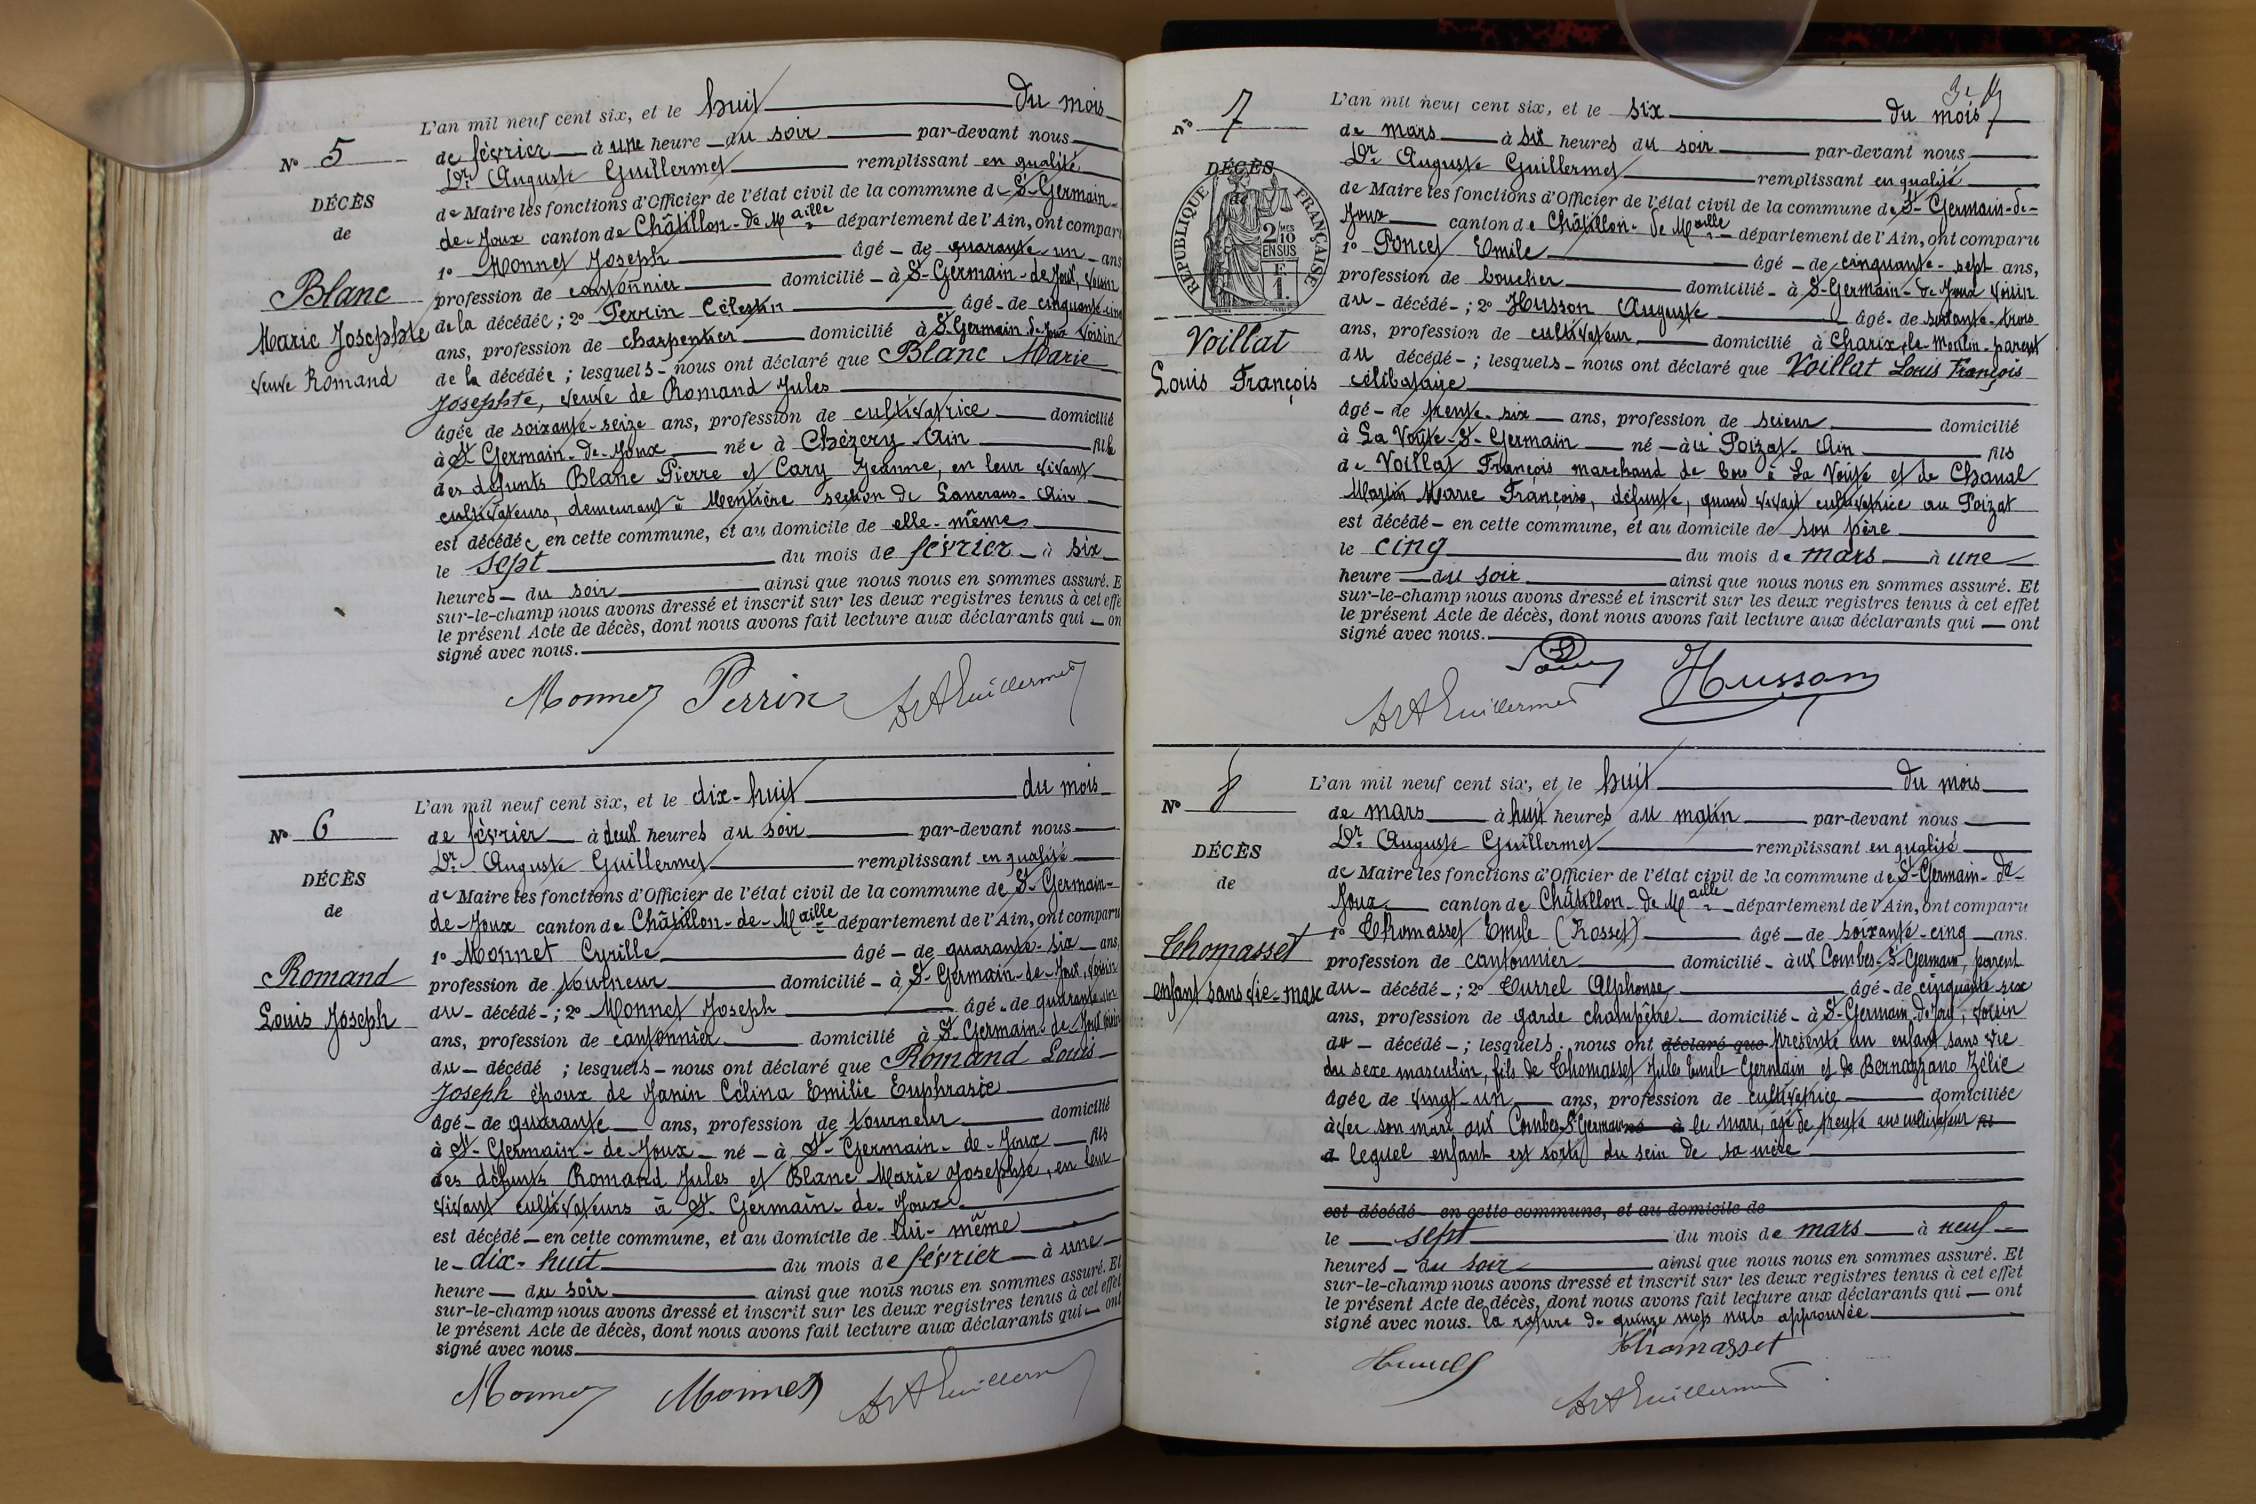 L'an mil neuf cent six, et le huit du mois
N° 5
de février à une heure du soir par-devant nous
Dr. Auguste Guillermet remplissant en qualité
DÉCÈS
de Maire les fonctions d'Officier de l'état civil de la commune de St-Germain-
de
de-Joux canton de Châtillon-de-Maille département de l'Ain, ont compar
1° Monnet Joseph âgé de quarante-un ans
Blanc
profession de cantonnier domicilié à St-Germain-de-Joux, voisin
Marie Josephte
de la décédée; 2° Perrin Célestin âgé de cinquante-cinq
ans, profession de charpentier domicilié à St Germain-de-Joux voisin
veuve Romand
de la décédée; lesquels nous ont déclaré que Blanc Marie
Josephte, veuve de Romand Jules
âgée de soixante-seize ans, profession de cultivatrice domicilié
à St Germain-de-Joux née à Chézery Ain fille
des défunts Blanc Pierre et Cary Jeanne, en leur vivant
cultivateurs, demeurant à Mentière section de Lancrans-Ain
est décédée en cette commune, et au domicile de elle-même
le sept du mois de février à six
heures du soir ainsi que nous nous en sommes assuré. E
sur-le-champ nous avons dressé et inscrit sur les deux registres tenus à cet effe
le présent Acte de décès, dont nous avons fait lecture aux déclarants qui on
signé avec nous.
Monnet Perrin Dr A Guillermet
L'an mil neuf cent six, et le dix-huit du mois
N° 6
de février à deux heures du soir par-devant nous
Dr. Auguste Guillermet remplissant en qualité
DÉCÈS
de Maire les fonctions d'Officier de l'état civil de la commune de St-Germain-
de
de-Joux canton de Châtillon-de-Maille département de l'Ain, ont comparu
1° Monnet Cyrille âgé de quarante-six ans,
Romand
profession de tourneur domicilié à St-Germain-de-Joux, voisin
Louis Joseph
du décédé; 2° Monnet Joseph âgé de quarante-un
ans, profession de cantonnier domicilié à St-Germain-de-Joux voisin
du décédé; lesquels nous ont déclaré que Romand Louis
Joseph époux de Janin Célina Emilie Euphrasie
âgé de quarante ans, profession de tourneur domicilié
à St-Germain-de-Joux né à St-Germain-de-Joux fils
des défunts Romand Jules et Blanc Marie Josephte, en leur
vivant cultivateurs à St-Germain-de-Joux
est décédé en cette commune, et au domicile de lui-même
le dix-huit du mois de février à une
heure du soir ainsi que nous nous en sommes assuré. Et
sur-le-champ nous avons dressé et inscrit sur les deux registres tenus à cet effet
le présent Acte de décès, dont nous avons fait lecture aux déclarants qui ont
signé avec nous
Monnet Monnet Dr A Guillerm
L'an mil neuf cent six, et le six du mois
N° 7
de mars à six heures du soir par-devant nous
Dr. Auguste Guillermet remplissant en qualité
DÉCÈS
de
RÉPUBLIQUE FRANÇAISE
2/10MES EN SUS
F 1.
de Maire les fonctions d'Officier de l'état civil de la commune de St-Germain-de-
Joux canton de Châtillon-de-Maille département de l'Ain, ont comparu
1° Poncet Emile âgé de cinquante-sept ans,
profession de boucher domicilié à St-Germain-de-Joux voisin
du décédé; 2° Husson Auguste âgé de soixante-trois
Voillat
ans, profession de cultivateur domicilié à Charix, le Moulin parent
Louis François
du décédé; lesquels nous ont déclaré que Voillat Louis François
célibataire
âgé de trente-six ans, profession de scieur domicilié
à La Voûte-St-Germain né au Poizat-Ain fils
de Voillat François marchand de bois à La Voûte et de Chanal
Martin Marie Françoise, défunte, quand vivait cultivatrice au Poizat
est décédé en cette commune, et au domicile de son père
le cinq du mois de mars à une
heure du soir ainsi que nous nous en sommes assuré. Et
sur-le-champ nous avons dressé et inscrit sur les deux registres tenus à cet effet
le présent Acte de décès, dont nous avons fait lecture aux déclarants qui ont
signé avec nous.
Dr A Guillermet Husson
L'an mil neuf cent six, et le huit du mois
N° 8
de mars à huit heures du matin par-devant nous
Dr. Auguste Guillermet remplissant en qualité
DÉCÈS
de Maire les fonctions d'Officier de l'état civil de la commune de St-Germain-de-
de
Joux canton de Châtillon-de-Maille département de l'Ain, ont comparu
1° Thomasset Emile (Rosset) âgé de soixante-cinq ans
Thomasset
profession de cantonnier domicilié aux Combes-St-Germain, parent
enfant sans vie-masc
du décédé; 2° Turrel Alphonse âgé de cinquante six
ans, profession de garde champêtre domicilié à St-Germain-de-Joux, voisin
du décédé; lesquels nous ont déclaré que présenté un enfant sans vie
du sexe masculin, fils de Thomasset Jules Emile Germain et de Bernazzano Zélie
âgée de vingt-un ans, profession de cultivatrice domiciliée
avec son mari aux Combes-St-Germain née à le mari, âgé de trente ans cultivateur
lequel enfant est sorti du sein de sa mère
est décédé en cette commune, et au domicile de
le sept du mois de mars à neuf
heures du soir ainsi que nous nous en sommes assuré. Et
sur-le-champ nous avons dressé et inscrit sur les deux registres tenus à cet effet
le présent Acte de décès, dont nous avons fait lecture aux déclarants qui ont
signé avec nous. la rature de quinze mots nuls approuvée
Thomasset
Dr A Guillermet